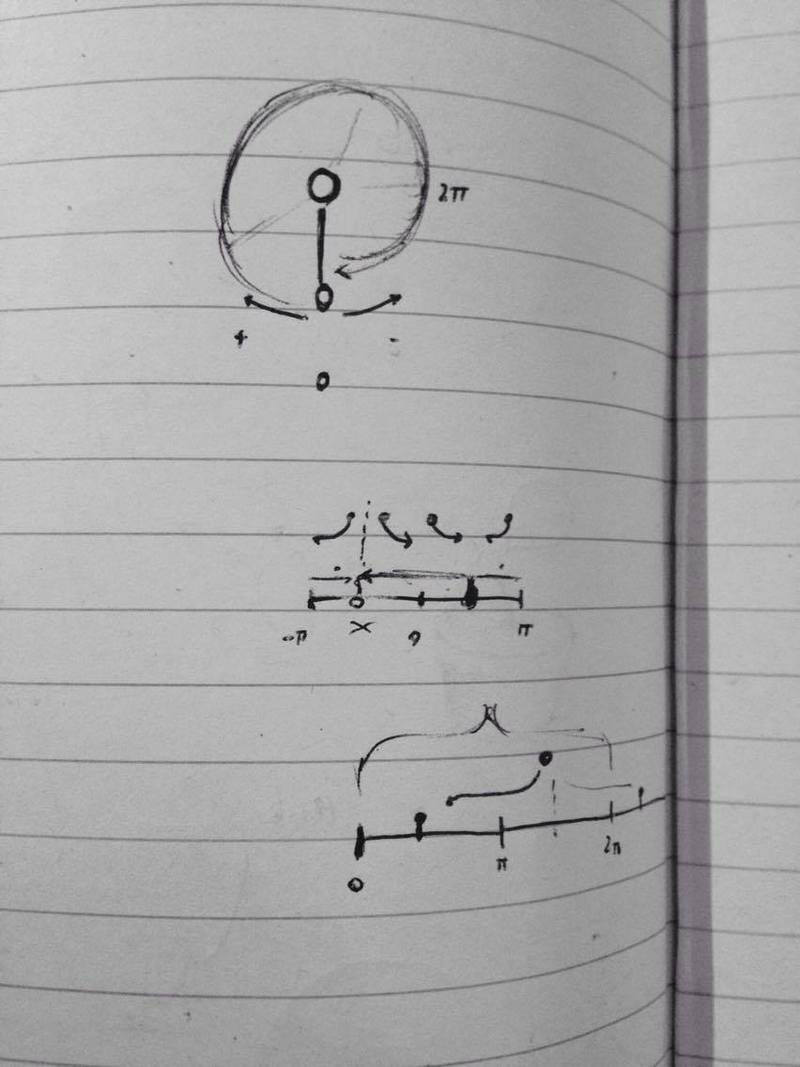 2π
+ -
0
-π × 0 π
π 2π
0